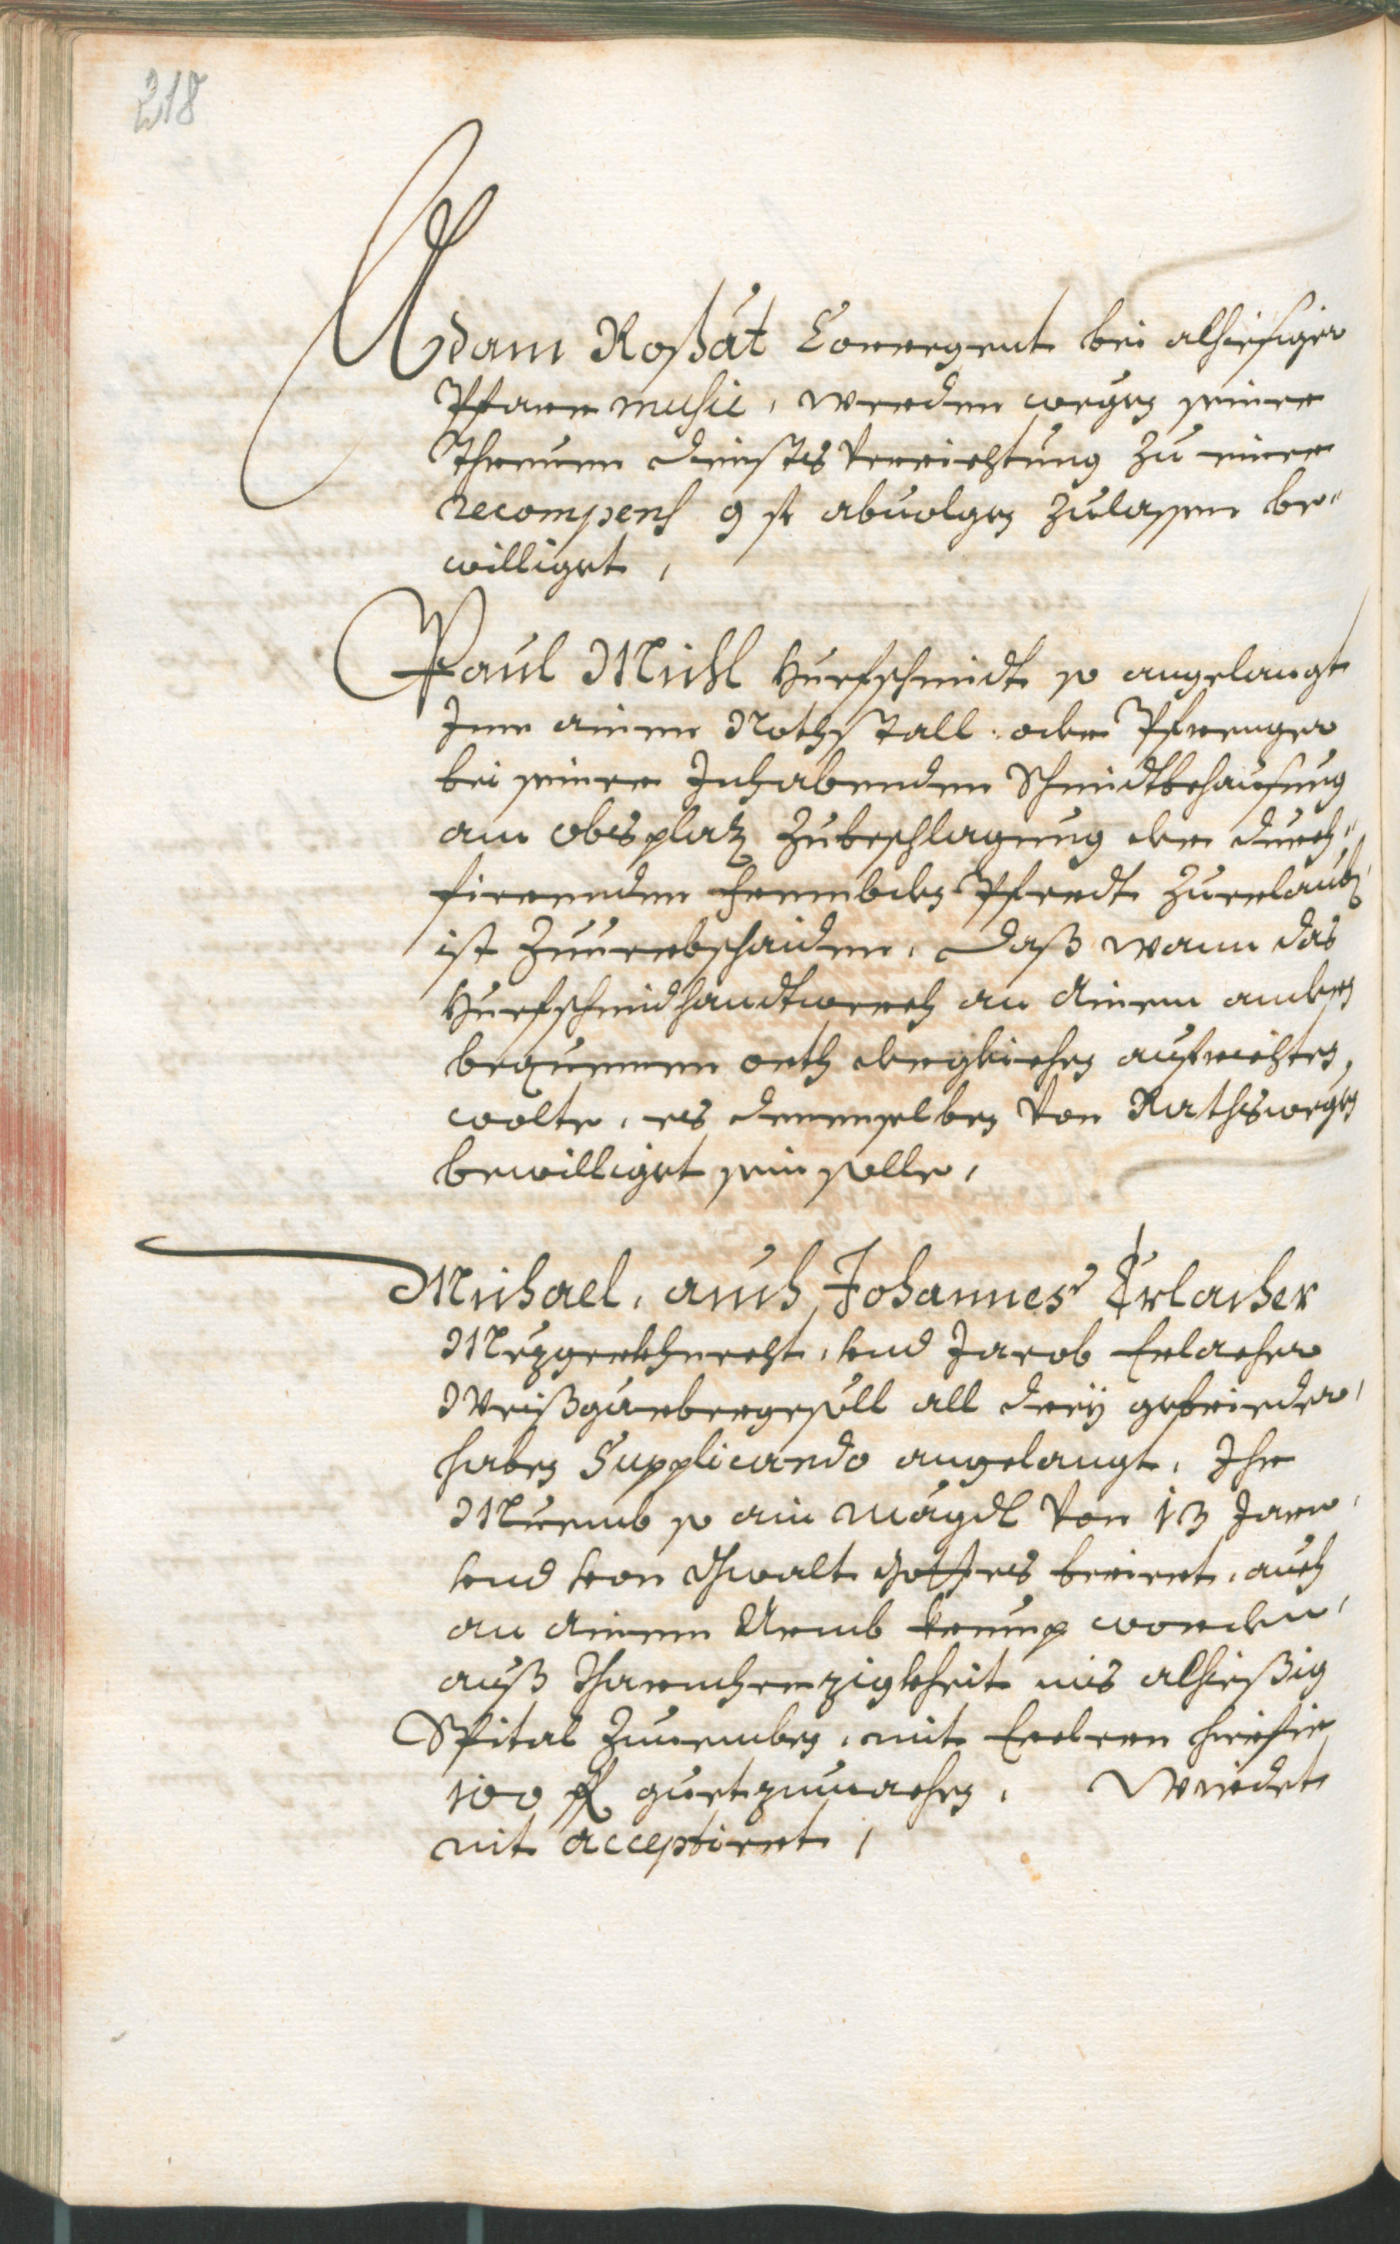 218
Adam Roßat Corregent bei alhiesiger
Pfarr music, werden wegen seiner
Threuen dienstes verrichtung zu einer
recompens 9 fl abuolgen zulassen be"
williget,
Paul Michl Huefschmidt so angelangt
Jme ainen Nothstall oder Pfrenger
bei seiner Jnhabenden Schmidtbehausung
am Obsplatz zubeschlagung der durch"
fierenden frembden Pferdt zuerlauben
ist zuuerbschaiden, daß wann das
Huefschmidhandtwerch an ainem andern
bequemen orth dergleichen aufrichten,
wolte, es demselben von Rathswegen
bewilliget sein solle,
Michael, auch Johannes Erlacher
Mezgerkhnecht, vnd Jacob Erlacher
Weißgärbergesöll all dreÿ gebrieder,
haben Supplicando angelangt, Jhr
Muemb so ain mägdl von 13 Jarn,
vnd von Gwalt Gottes beriert, auch
an ainem Armb krump worden,
auß Parmherzigkheit ins alhießig
Spital zunemben, mit Erleren hiefir
100 fl guetzumachen, Wirdet
nit acceptiert,